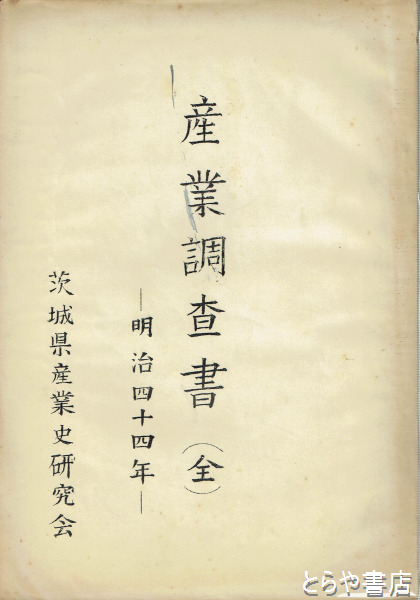 産業調査書（全）
―明治四十四年―
茨城県産業史研究会
とらや書店